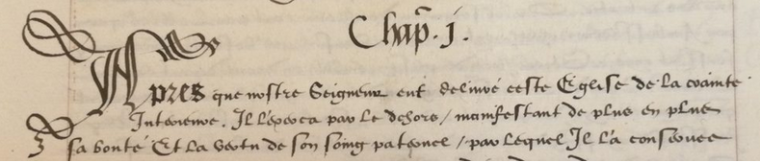 Chap. j.
Apres que nostre Seigneur eut delivré ceste Eglise de la crainte
Interieure. Il l'exerca par le dehors / manifestant de plus en plus
sa bonté Et la vertu de son soing paternel / par lequel Il l'a conservee